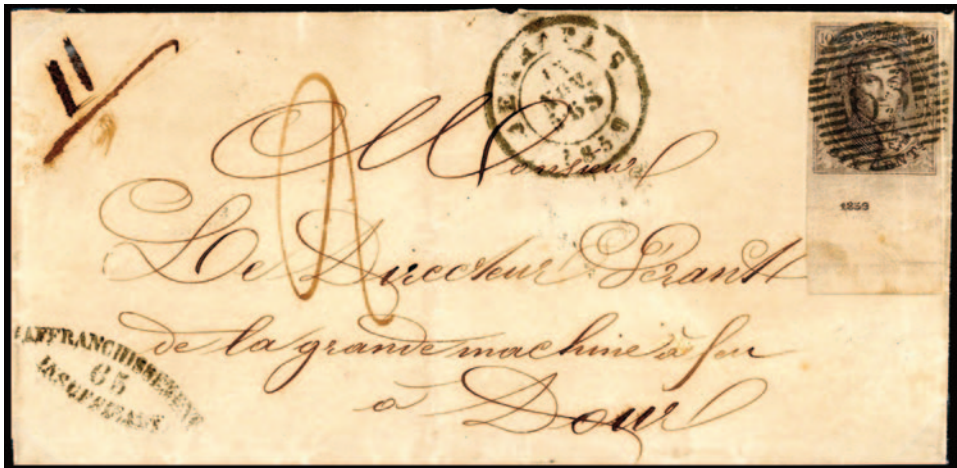 JEMMAPES
1859
10 10
CENTS
1859
Monsieur
Le Directeur Gérant
de la grande machine à feu
à Dour
AFFRANCHISSEMENT
65
INSUFFISANT